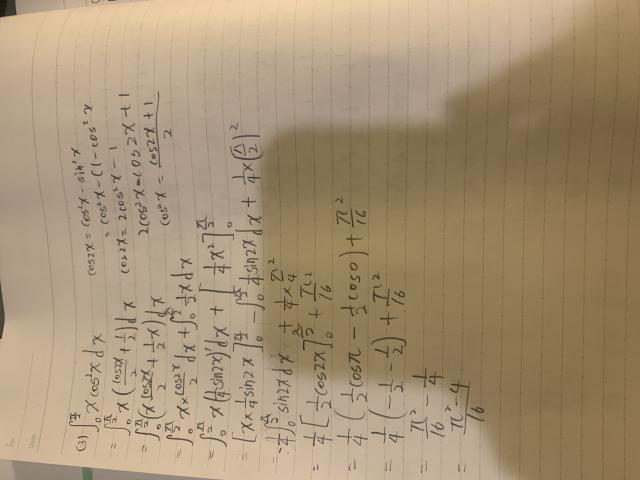 (3) ∫₀^{π/2} x cos²x dx
cos2x = cos²x - sin²x
= cos²x - (1 - cos²x
cos2x = 2cos²x - 1
2cos²x = cos2x + 1
cos²x = (cos2x + 1)/2
= ∫₀^{π/2} x (cos2x/2 + 1/2) dx
= ∫₀^{π/2} (x cos2x/2 + 1/2 x) dx
= ∫₀^{π/2} x × cos2x/2 dx + ∫₀^{π/2} 1/2 x dx
= ∫₀^{π/2} x (1/4 sin2x)' dx + [1/4 x²]₀^{π/2}
= [x × 1/4 sin2x]₀^{π/2} - ∫₀^{π/2} 1/4 sin2x dx + 1/4 × (π/2)²
= -1/4 ∫₀^{π/2} sin2x dx + 1/4 × π²/4
= 1/4 [1/2 cos2x]₀^{π/2} + π²/16
= 1/4 (1/2 cosπ - 1/2 cos0) + π²/16
= 1/4 (-1/2 - 1/2) + π²/16
= π²/16 - 1/4
= (π² - 4)/16